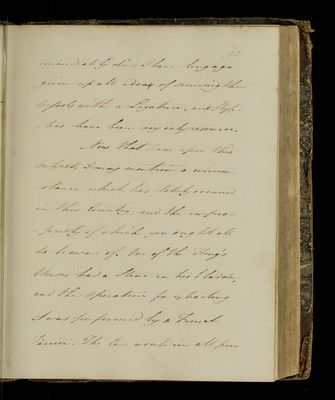 immediately die; I have long ago
given up all ideas of securing the
vessels with a Ligature, and Styp-
-tics have been my only resource.
Now that I am upon this
subject, I may mention a circum-
-stance which has lately occurred
in this Country, and the
of which you ought all
to beware of. One of the King's
Horses had a Stone in his Bladder,
and the operation for extracting
it was performed by a French
Farrier. The Case would in all pro-